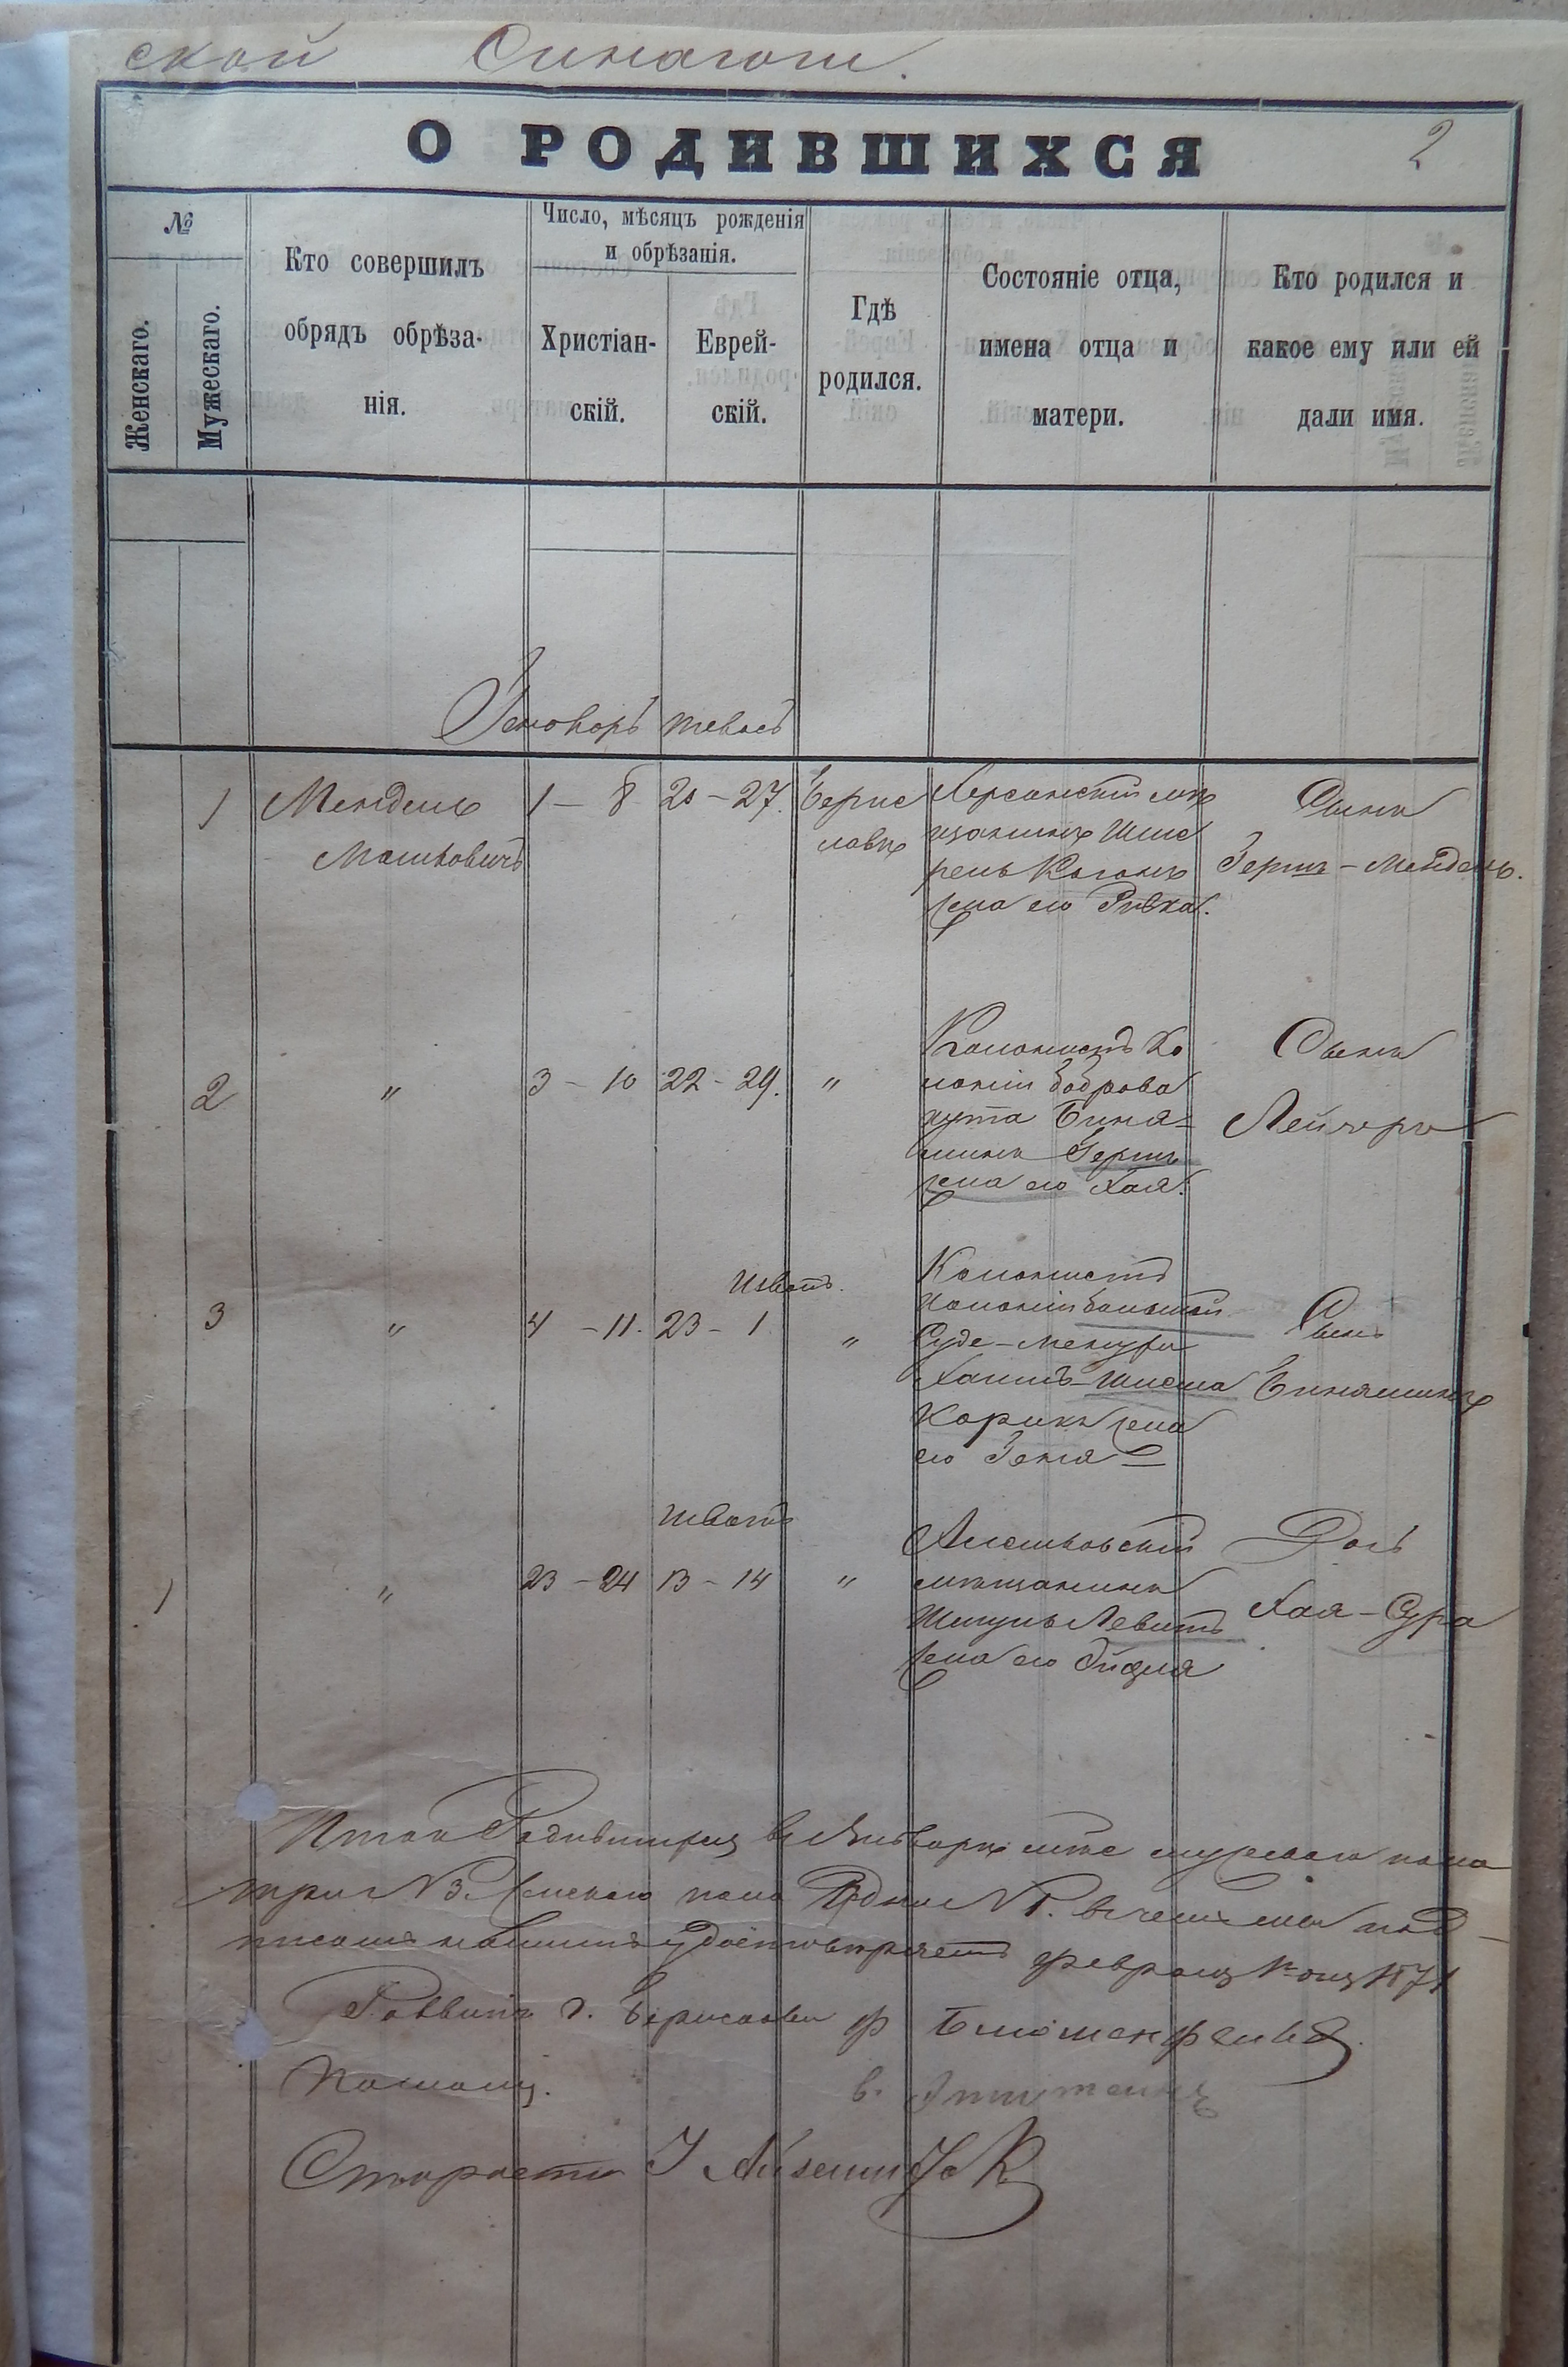 ской Синагоги.
О РОДИВШИХСЯ
2
№
Женскаго.
Мужескаго.
Кто совершилъ
обрядъ обрѣза-
нія.
Число, мѣсяцъ рожденія
и обрѣзанія.
Христіан-
скій.
Еврей-
скій.
Гдѣ
родился.
Состояніе отца,
имена отца и
матери.
Кто родился и
какое ему или ей
дали имя.
тевесъ
1 Мендель
Машковичъ
1 – 8
20 – 27.
Берис
лавѣ
Херсонскій мѣ
щанинъ
Коганъ
жена его Ривка.
Сынъ
Герш – Мендель.
2 "
3 – 10
22 – 29.
"
Колонистъ Ко
лоніи Бобровы
кута Бинья-
минъ Герш
жена его Хая.
Сынъ
Лейзеръ
3 "
4 – 11.
Шватъ.
23 – 1
"
Колонистъ
Колоніи Большой
Сейде-Менухи
Хаимъ
жена
его Геня
Сынъ
Биняминъ
1 "
23 – 24
Шватъ
13 – 14
"
Алешковскій
мѣщанинъ
Левитъ
жена его
Дочь
Хая – Сура
Итого Родившихся въ Январѣ м-цѣ мужескаго пола
три №3. Женскаго пола Одна №1. въ чемъ мы под-
писомъ нашимъ удостовѣряемъ Февраля 1871
Раввинъ г. Бериславля Ф Блюменфельд.
Помощ.
Староста